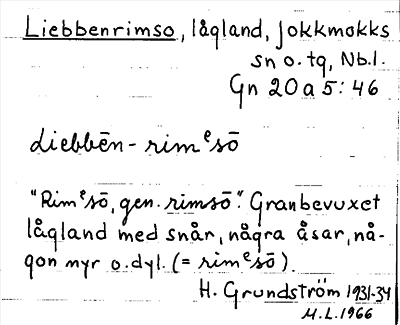 Liebbenrimso, lågland, Jokkmokks
sn o. tg, Nb.l.
Gn 20 a 5: 46
Liebbēn - rimᵉsō
"Rimᵉsō, gen. rimsō". Granbevuxet
lågland med snår, några åsar, nå-
gon myr o.dyl. (= rimᵉsō).
H. Grundström 1931-34
M.L. 1966